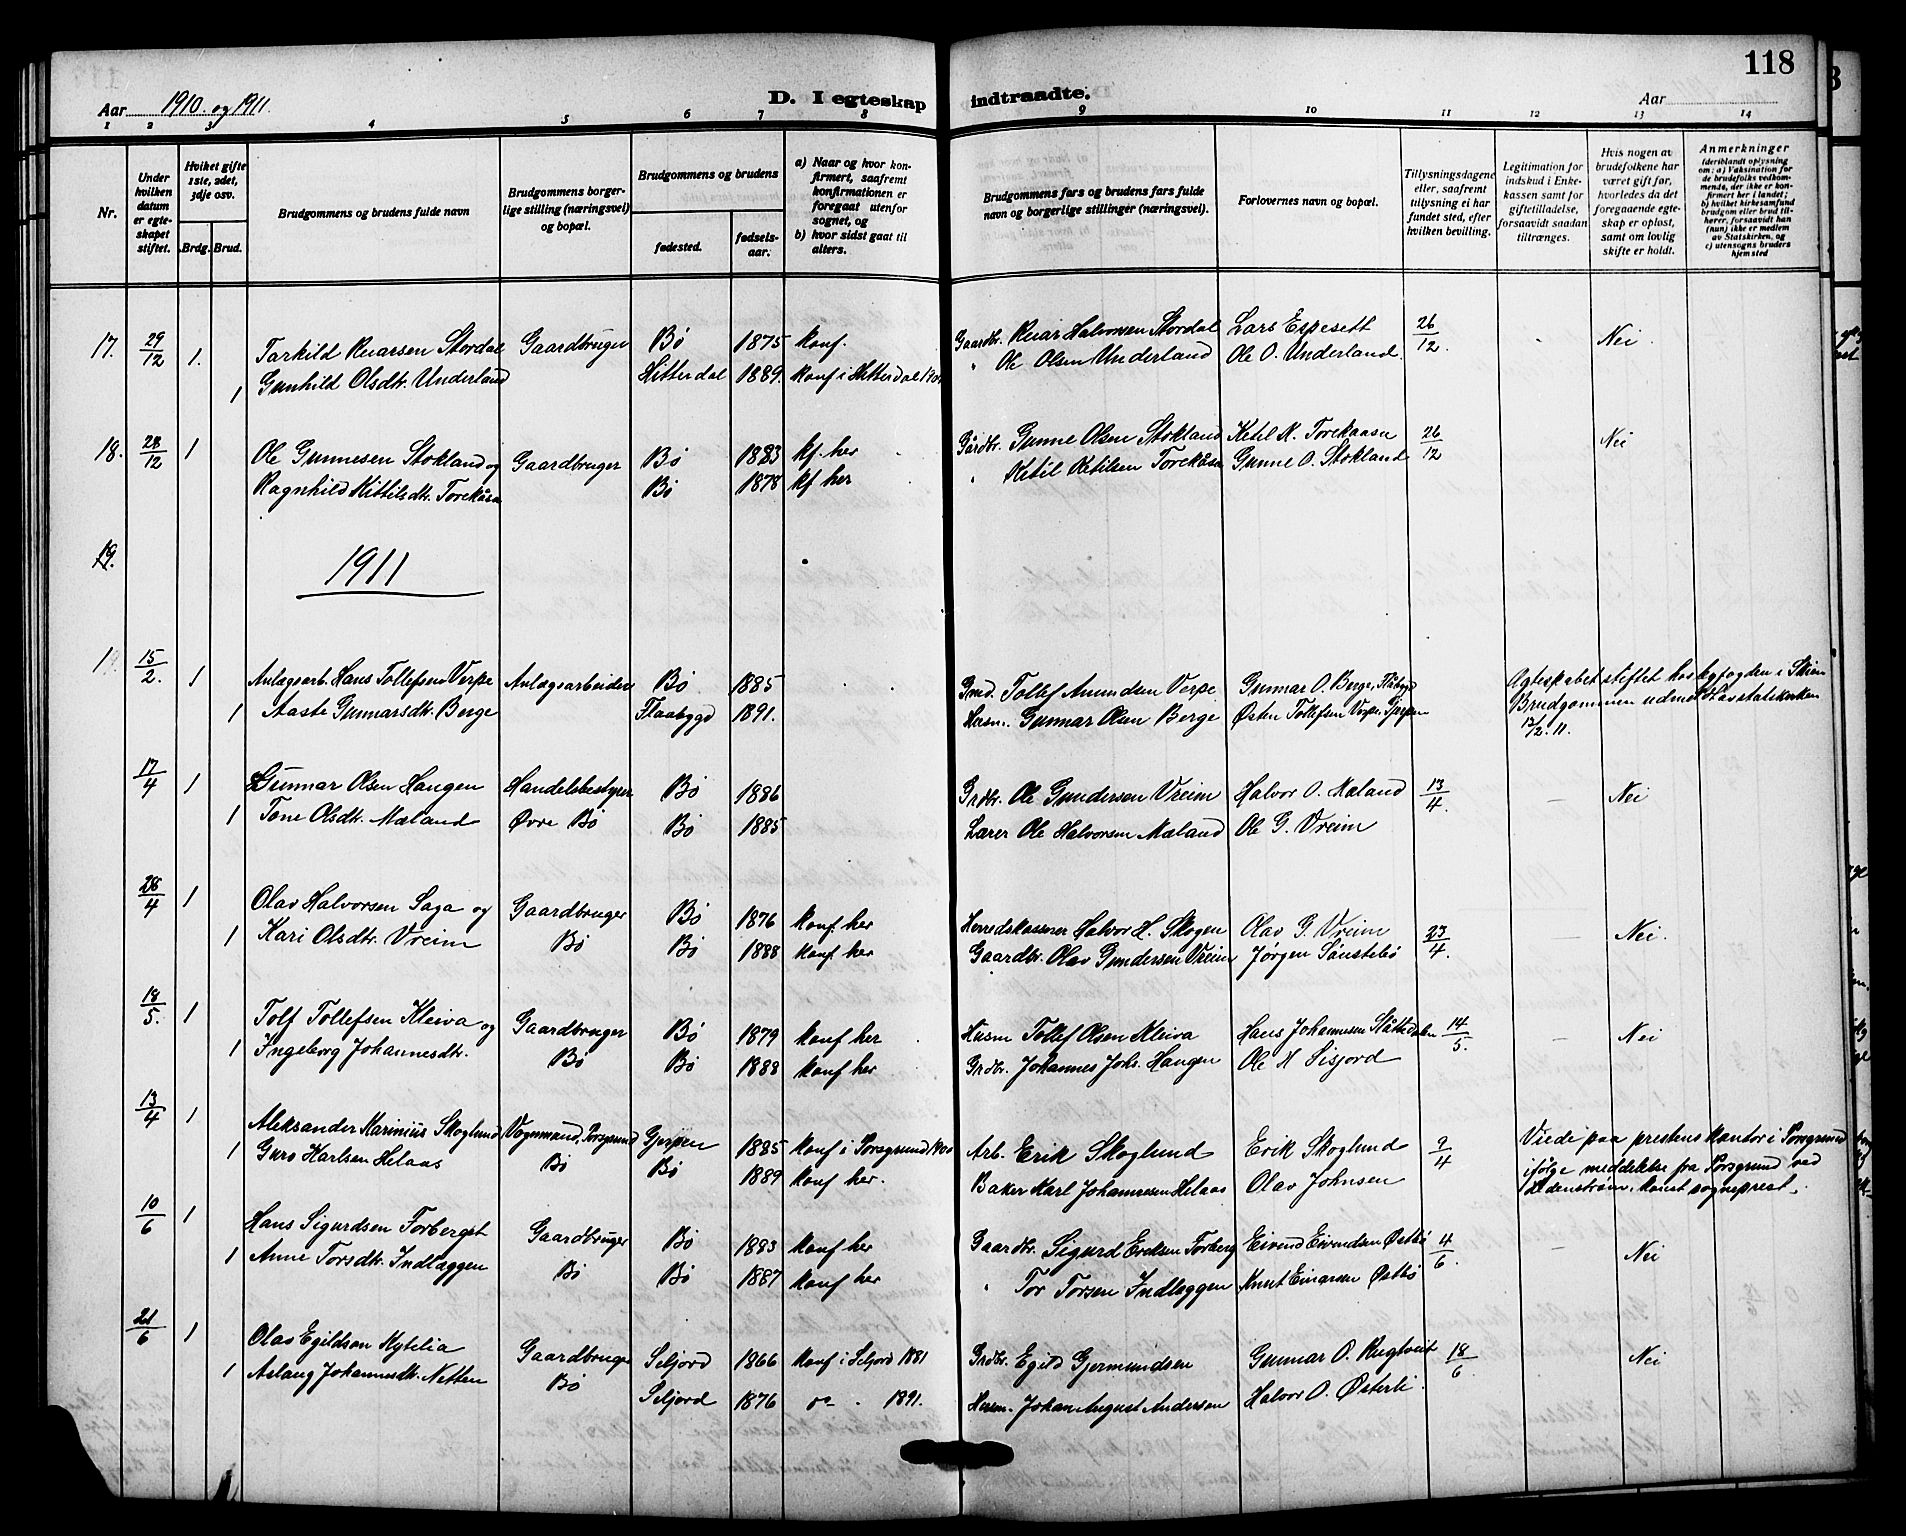 118
Aar 1910 og 1911.
D. I egteskap indtraadte.
Aar
1 2 3 4 5 6 7 8 9 10 11 12 13 14
Nr.
Under hvilken datum er egteskapet stiftet.
Hvilket gifte 1ste, 2det, 3dje osv.
Brdg. Brud.
Brudgommens og brudens fulde navn
Brudgommens borgerlige stilling (næringsvei) og bopæl.
Brudgommens og brudens
fødested.
fødselsaar.
a) Naar og hvor konfirmert, saafremt konfirmationen er foregaat utenfor sognet, og
b) hvor sidst gaat til alters.
Brudgommens fars og brudens fars fulde navn og borgerlige stillinger (næringsvei).
Forlovernes navn og bopæl.
Tillysningsdagene eller, saafremt tillysning ei har fundet sted, efter hvilken bevilling.
Legitimation for indskud i Enkekassen samt for giftetilladelse, forsaavidt saadan tiltrænges.
Hvis nogen av brudefolkene har været gift før, hvorledes da det foregaaende egteskap er opløst, samt om lovlig skifte er holdt.
Anmerkninger (deriblandt oplysning om: a) Vaksination for de brudefolks vedkommende, der ikke er konfirmert her i landet; b) hvilket kirkesamfund brudgom eller brud tilhører, forsaavidt han (hun) ikke er medlem av Statskirken, og c) utensogns bruders hjemsted
17. 29/12 1. Tarkild Ruarsen Stordal Gaardbruger Bø 1875 konf. Gaardbr. Ruar Halvorsen Stordal Lars Espesett 26/12 Nei
1 Gunhild Olsdtr. Underland Hitterdal 1889. konf i Hitterdal " Ole Olsen Underland Ole O. Underland.
18. 28/12 1 Ole Gunnesen Stokland og Gaardbruger Bø 1883 kf. her Gårdbr. Gunne Olsen Stokland Ketil K. Torekaasn 26/12 Nei
Ragnhild Kittilsdtr. Torekåsn Bø 1878 kf her " Ketil Ketilsen Torekåsn Gunne O. Stokland
19.
1911
1 15/2. 1 Anlægsarb. Hans Tollefsen Verpe Anlægsarbeider Bø 1885 Gmd. Tollef Amundsen Verpe Gunnar O. Berge, Flåbygd Ægteskabet stiftet hos byfogden i Skien
1 Aaste Gunnarsdtr. Berge Flaabygd 1891. Husm. Gunnar Olsen Berge Østen Tollefsen Verpe, Gjerpen Brudgommen udmeldt av statskirken
12/2. 11.
17/4 1 Gunnar Olsen Haugen Handelsbestyrer Bø 1886 Grdbr. Ole Gundersen Vreim Halvor O. Mæland 13/4. — Nei
1 Tone Olsdtr. Mæland Øvre Bø Bø 1885 Lærer Ole Halvorsen Mæland Ole G. Vreim
28/4 1 Olav Halvorsen Saga og Gaardbruger Bø 1876 konf. her Herredskasserer Halvor H. Skogen Olav G. Vreim 23/4. — Nei.
1 Kari Olsdtr. Vreim Bø Bø 1888 konf her Gaardbr. Olav Gundersen Vreim Jørgen Sønstebø
18/5. 1 Tolf Tollefsen Kleiva og Gaardbruger Bø 1879 konf her Husm Tollef Olsen Kleiva Hans Johannesen Ståttedalen 14/5. — Nei
1 Ingeborg Johannesdtr. Bø Bø 1888 konf her Grdbr. Johannes Johs. Haugen Ole H Sisjord
13/4 1 Aleksander Marinius Skoglund Vognmand, Porsgrund Gjerpen 1885 konf i Porsgrund 1900 Arb. Erik Skoglund Erik Skoglund 9/4 Viede paa prestens kontor i Porsgrund
1 Guro Karlsen Helaas Bø Bø 1889 konf her. Baker Karl Johannesen Helaas Olav Johnsen ifølge meddelelse fra Porsgrund ved
konst sogneprest.
10/6 1 Hans Sigurdsen Forberget Gaardbruger Bø 1883 konf her Gaardbr. Sigurd Eriksen Forberg Eivind Eivindsen Østbø 4/6. — Nei
1 Anne Torsdtr. Indlæggen Bø Bø 1887 konf her " Tor Torsen Indlæggen Knut Einarsen Østbø
21/6 1 Olav Egildsen Nytelia Gaardbruger Seljord 1866 konf i Seljord 1881 Grdbr. Egild Gjermundsen Gunnar O. Rugtveit 18/6 Nei
1 Aslaug Johannesdtr. Netten Bø Seljord 1876 1891. Husm. Johan August Andersen Halvor O. Østerli